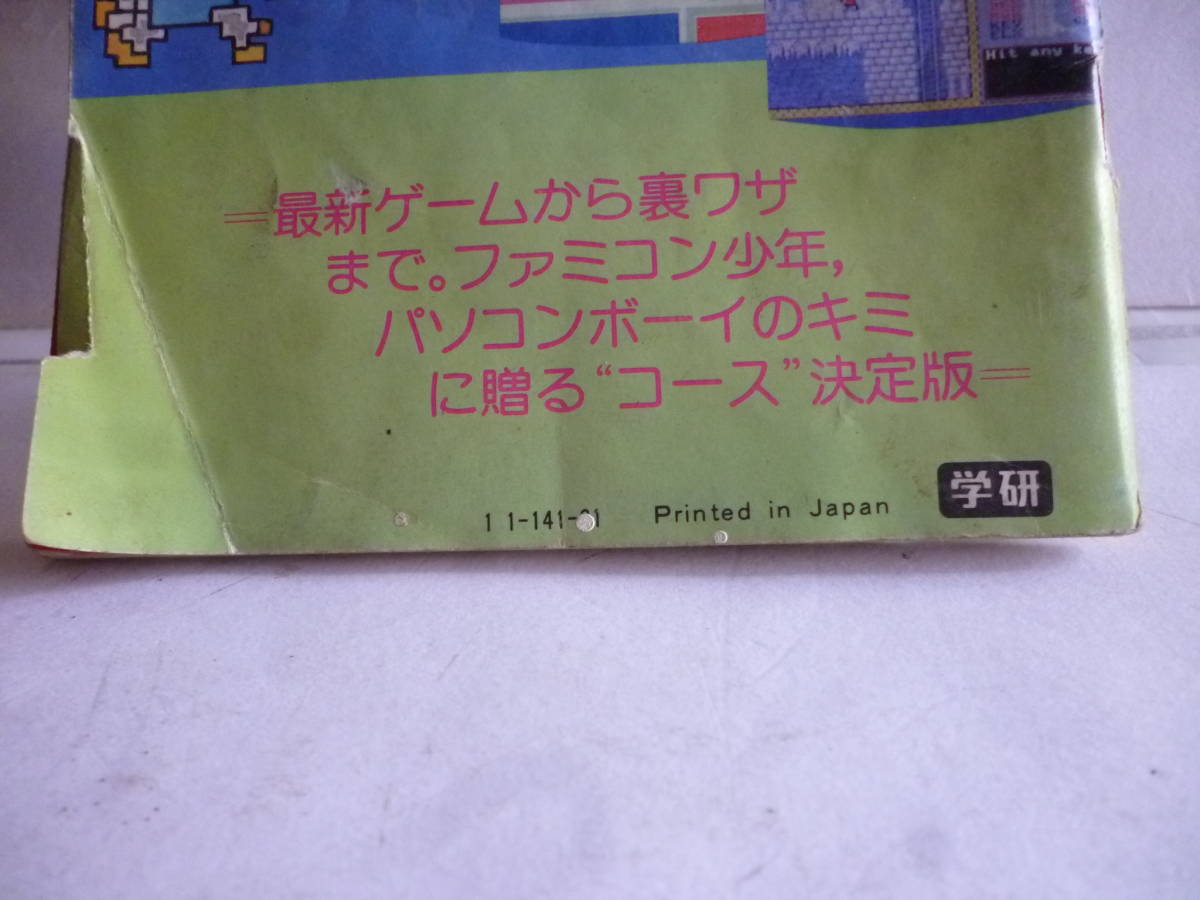 Hit any
=最新ゲームから裏ワザ
まで。ファミコン少年,
パソコンボーイのキミ
に贈る“コース”決定版=
学研
1 1-141- Printed in Japan